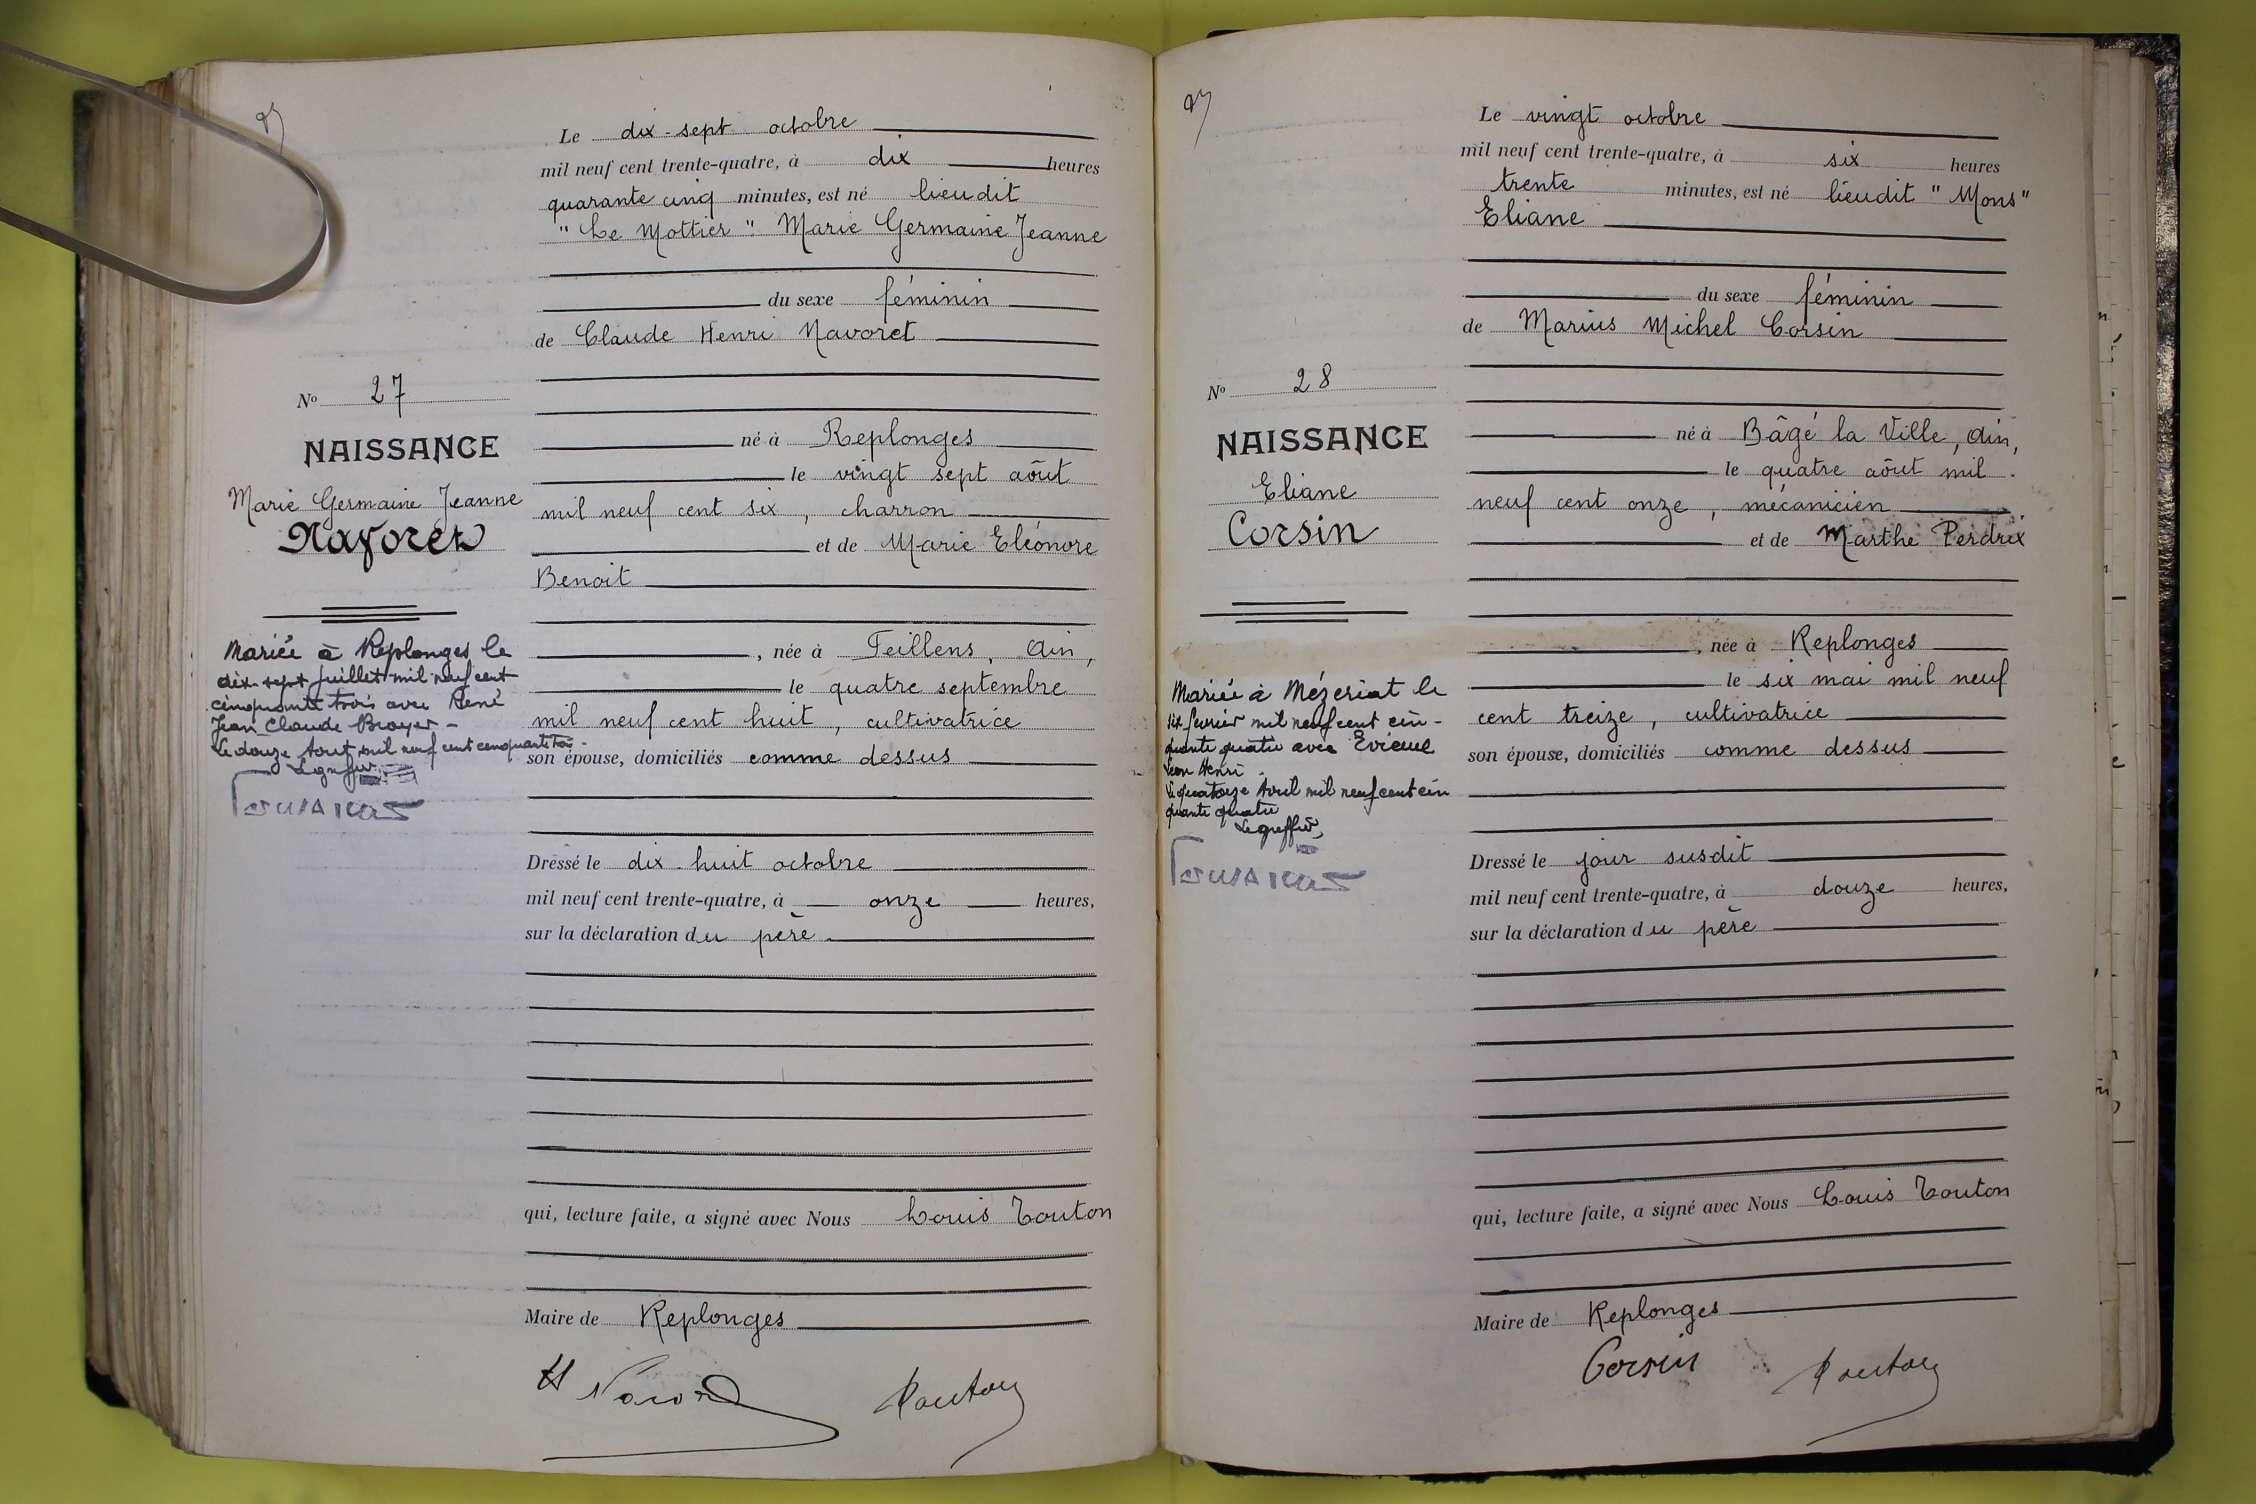 Le dix-sept octobre
mil neuf cent trente-quatre, à dix heures
quarante cinq minutes, est né lieudit
"Le Mottier". Marie Germaine Jeanne
du sexe féminin
de Claude Henri Navoret
No 27
NAISSANCE
Marie Germaine Jeanne
Navoret
né à Replonges
le vingt sept aôut
mil neuf cent six, charron
et de Marie Eléonore
Benoit
, née à Feillens, Ain,
le quatre septembre
mil neuf cent huit, cultivatrice
son épouse, domiciliés comme dessus
Mariée à Replonges le
dix-sept juillet mil neuf cent
cinquante trois avec René
Jean Claude Broyer -
Le douze Aout mil neuf cent cinquante trois.
Le greffier
Dressé le dix-huit octobre
mil neuf cent trente-quatre, à onze heures,
sur la déclaration du père
qui, lecture faite, a signé avec Nous Louis Touton
Maire de Replonges
Le vingt octobre
mil neuf cent trente-quatre, à six heures
trente minutes, est né lieudit "Mons"
Eliane
du sexe féminin
de Marius Michel Corsin
No 28
NAISSANCE
Eliane
Corsin
né à Bâgé la Ville, Ain,
le quatre aôut mil
neuf cent onze, mécanicien
et de Marthe Perdrix
, née à Replonges
le six mai mil neuf
cent treize, cultivatrice
son épouse, domiciliés comme dessus
Mariée à Mézeriat le
six février mil neuf cent cin-
quante quatre avec
Léon Henri.
Le quatorze Avril mil neuf cent cin
quante quatre
Le greffier,
Dressé le jour susdit
mil neuf cent trente-quatre, à douze heures,
sur la déclaration du père
qui, lecture faite, a signé avec Nous Louis Touton
Maire de Replonges
Corsin Touton